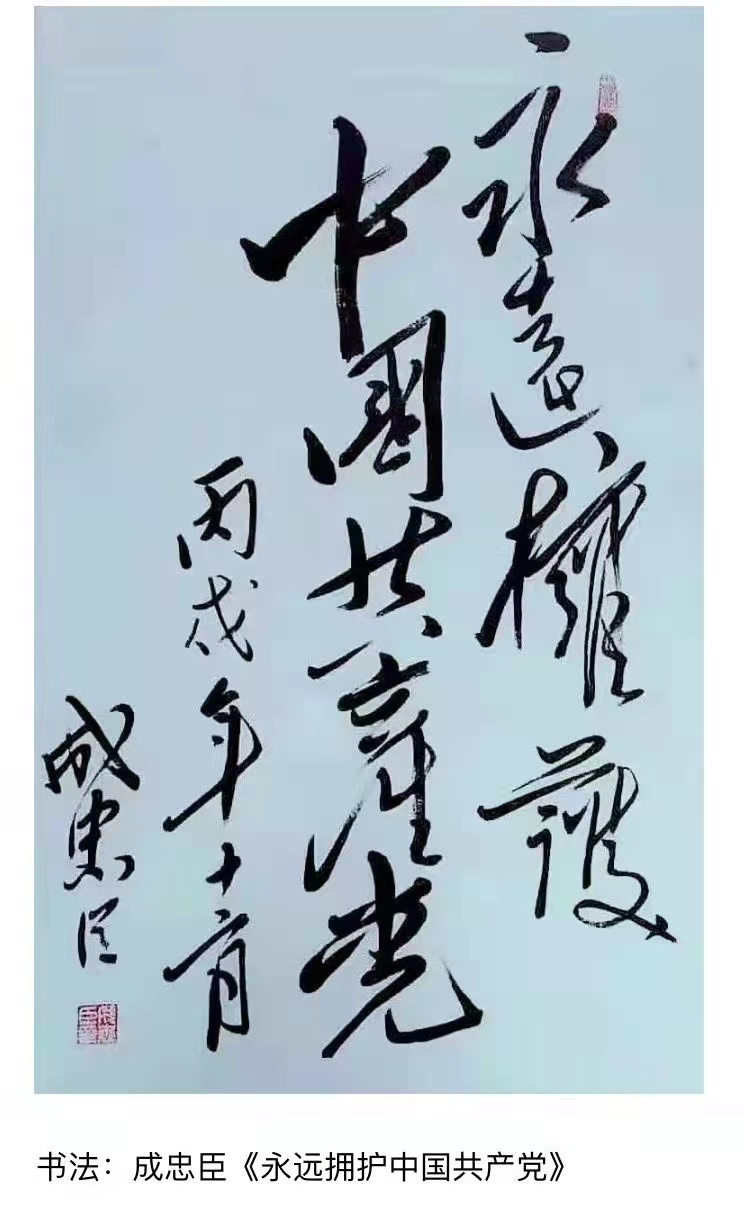 永遠擁護
中國共產党
丙戌年十月
成忠臣
书法：成忠臣《永远拥护中国共产党》